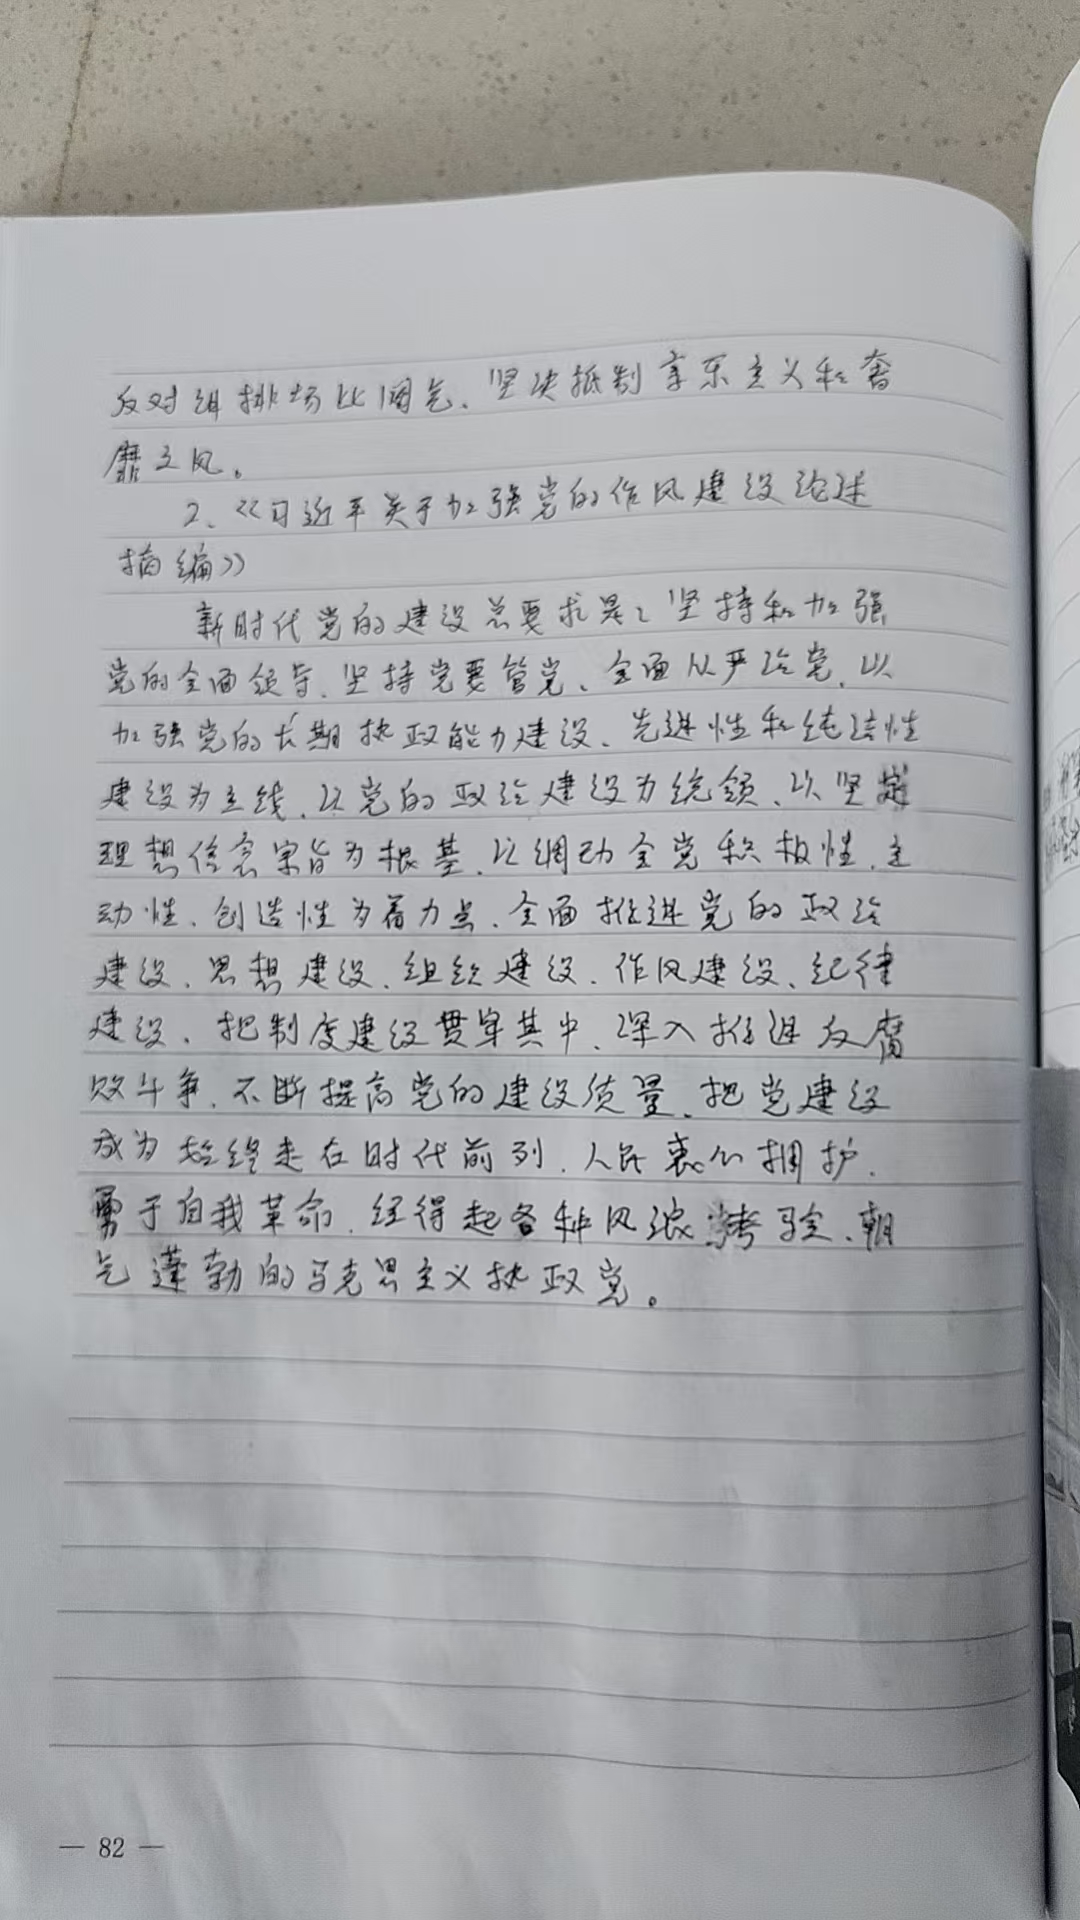 反对讲排场比阔气、坚决抵制享乐主义和奢
靡之风。
2、《习近平关于加强党的作风建设论述
摘编》
新时代党的建设总要求是：坚持和加强
党的全面领导、坚持党要管党、全面从严治党、以
加强党的长期执政能力建设、先进性和纯洁性
建设为主线、以党的政治建设为统领、以坚定
理想信念宗旨为根基、以调动全党积极性、主
动性、创造性为着力点、全面推进党的政治
建设、思想建设、组织建设、作风建设、纪律
建设、把制度建设贯穿其中、深入推进反腐
败斗争、不断提高党的建设质量、把党建设
成为始终走在时代前列、人民衷心拥护、
勇于自我革命、经得起各种风浪考验、朝
气蓬勃的马克思主义执政党。
— 82 —